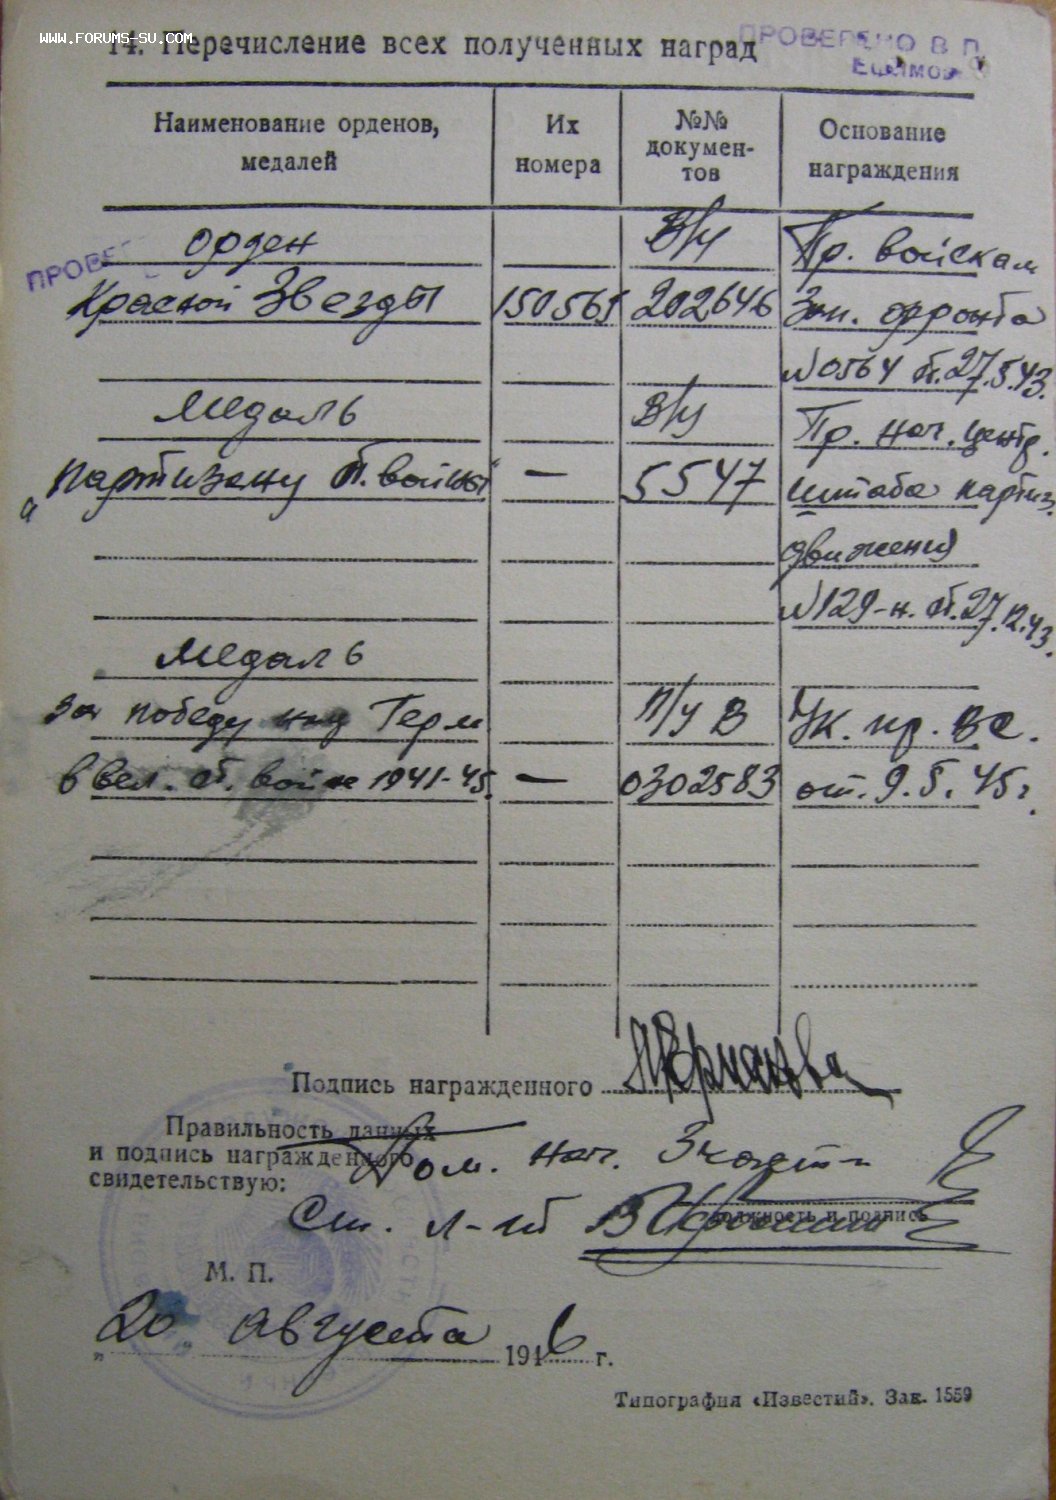 WWW.FORUMS-SU.COM
14. Перечисление всех полученных наград
ПРОВЕРЕНО В П
Наименование орденов, медалей
Их номера
№№ докумен-тов
Основание награждения
ПРОВЕ
орден В/к Пр. войскам
Красной Звезды 150561 202646 Зап. фронта
№ 0564 от 27.5.43.
Медаль В/у Пр. нач. центр.
„Партизану От. войны" — 5547 штаба партиз.
движения
№ 129-н. от 27.12.43.
Медаль
За победу над Герм П/у В Ук. пр. ВС.
в вел. от. войне 1941-45. — 0302583 от 9.5.45 г.
Подпись награжденного
Правильность данных
и подпись награжденного
свидетельствую:
Пом. нач.
Ст. л-нт
должность и подпись
М. П.
„20 августа 1946 г.
Типография «Известий». Зак. 1559